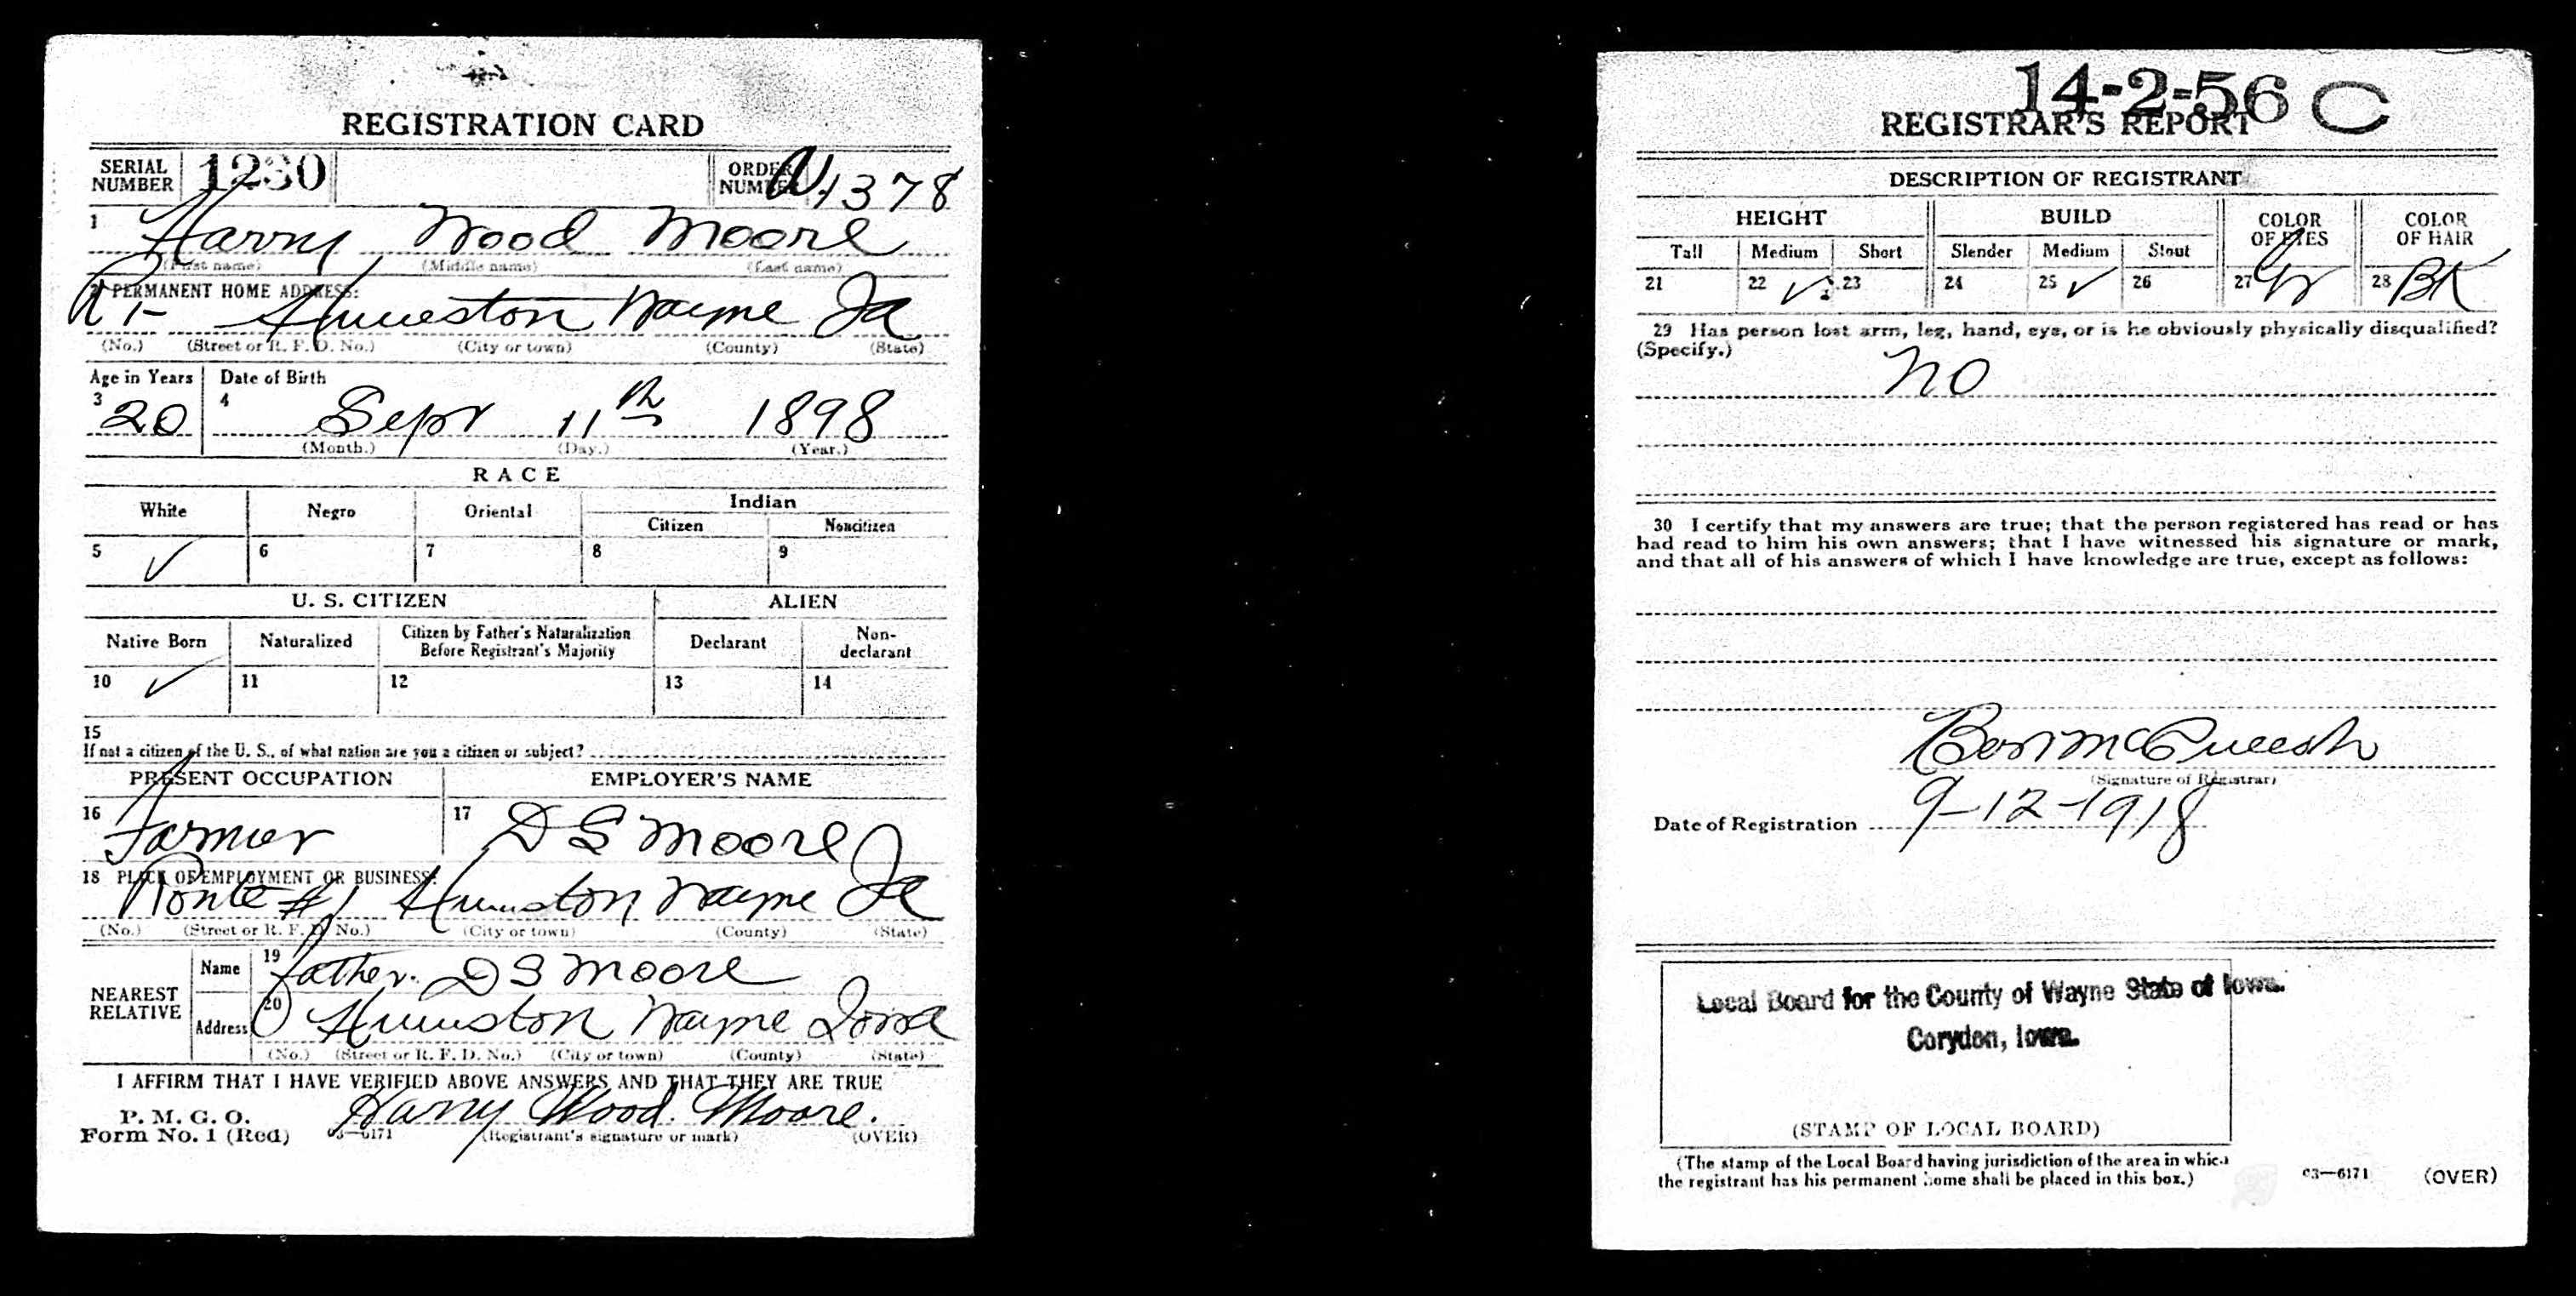 REGISTRATION CARD
SERIAL NUMBER 1230 ORDER NUMBER A1378
1 Harry Wood Moore
(First name) (Middle name) (Last name)
2 PERMANENT HOME ADDRESS:
R 1- Humeston Wayne Ia
(No.) (Street or R. F. D. No.) (City or town) (County) (State)
Age in Years Date of Birth
3 20 4 Sept 11th 1898
(Month.) (Day.) (Year.)
RACE
White Negro Oriental Indian
Citizen Noncitizen
5 ✓ 6 7 8 9
U. S. CITIZEN ALIEN
Native Born Naturalized Citizen by Father's Naturalization Before Registrant's Majority Declarant Non-declarant
10 ✓ 11 12 13 14
15
If not a citizen of the U. S., of what nation are you a citizen or subject?
PRESENT OCCUPATION EMPLOYER'S NAME
16 Farmer 17 D S Moore
18 PLACE OF EMPLOYMENT OR BUSINESS:
Route #1 Humeston Wayne Ia
(No.) (Street or R. F. D. No.) (City or town) (County) (State)
NEAREST RELATIVE
Name 19 Father. D S Moore
Address 20 Humeston Wayne Iowa
(No.) (Street or R. F. D. No.) (City or town) (County) (State)
I AFFIRM THAT I HAVE VERIFIED ABOVE ANSWERS AND THAT THEY ARE TRUE
P. M. G. O.
Form No. 1 (Red) 03—6171 Harry Wood Moore.
(Registrant's signature or mark) (OVER)
14-2-56 C
REGISTRAR'S REPORT
DESCRIPTION OF REGISTRANT
HEIGHT BUILD COLOR OF EYES COLOR OF HAIR
Tall Medium Short Slender Medium Stout
21 22 ✓ 23 24 25 ✓ 26 27 28 BK
29 Has person lost arm, leg, hand, eye, or is he obviously physically disqualified?
(Specify.)
no
30 I certify that my answers are true; that the person registered has read or has
had read to him his own answers; that I have witnessed his signature or mark,
and that all of his answers of which I have knowledge are true, except as follows:
(Signature of Registrar)
Date of Registration 9-12-1918
Local Board for the County of Wayne State of Iowa.
Corydon, Iowa.
(STAMP OF LOCAL BOARD)
(The stamp of the Local Board having jurisdiction of the area in which
the registrant has his permanent home shall be placed in this box.)
03—6171 (OVER)